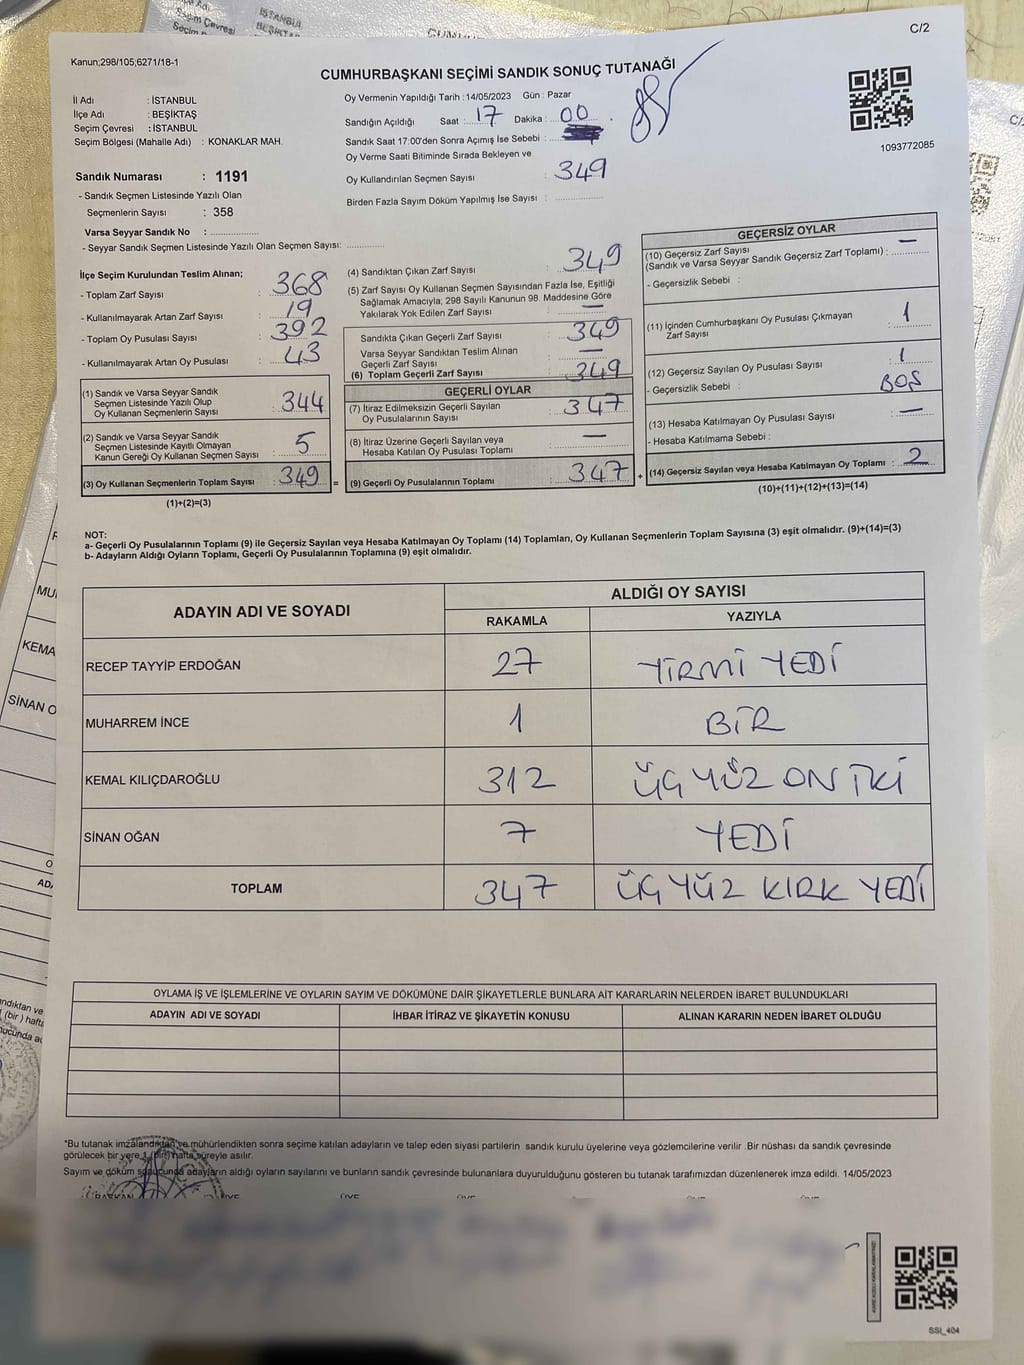 C/2
Kanun;298/105;6271/18-1
CUMHURBAŞKANI SEÇİMİ SANDIK SONUÇ TUTANAĞI
İl Adı : İSTANBUL
İlçe Adı : BEŞİKTAŞ
Seçim Çevresi : İSTANBUL
Seçim Bölgesi (Mahalle Adı) : KONAKLAR MAH.
Oy Vermenin Yapıldığı Tarih : 14/05/2023 Gün : Pazar
Sandığın Açıldığı Saat : 17 Dakika : 00
Sandık Saat 17:00'den Sonra Açımış İse Sebebi :
Oy Verme Saati Bitiminde Sırada Bekleyen ve
Oy Kullandırılan Seçmen Sayısı : 349
Birden Fazla Sayım Döküm Yapılmış İse Sayısı :
1093772085
Sandık Numarası : 1191
- Sandık Seçmen Listesinde Yazılı Olan
Seçmenlerin Sayısı : 358
Varsa Seyyar Sandık No :
- Seyyar Sandık Seçmen Listesinde Yazılı Olan Seçmen Sayısı:
İlçe Seçim Kurulundan Teslim Alınan;
- Toplam Zarf Sayısı : 368
- Kullanılmayarak Artan Zarf Sayısı : 19
- Toplam Oy Pusulası Sayısı : 392
- Kullanılmayarak Artan Oy Pusulası : 43
(1) Sandık ve Varsa Seyyar Sandık
Seçmen Listesinde Yazılı Olup
Oy Kullanan Seçmenlerin Sayısı : 344
(2) Sandık ve Varsa Seyyar Sandık
Seçmen Listesinde Kayıtlı Olmayan
Kanun Gereği Oy Kullanan Seçmen Sayısı : 5
(3) Oy Kullanan Seçmenlerin Toplam Sayısı : 349 =
(1)+(2)=(3)
(4) Sandıktan Çıkan Zarf Sayısı : 349
(5) Zarf Sayısı Oy Kullanan Seçmen Sayısından Fazla İse, Eşitliği
Sağlamak Amacıyla; 298 Sayılı Kanunun 98. Maddesine Göre
Yakılarak Yok Edilen Zarf Sayısı : —
Sandıkta Çıkan Geçerli Zarf Sayısı : 349
Varsa Seyyar Sandıktan Teslim Alınan
Geçerli Zarf Sayısı : —
(6) Toplam Geçerli Zarf Sayısı : 349
GEÇERLİ OYLAR
(7) İtiraz Edilmeksizin Geçerli Sayılan
Oy Pusulalarının Sayısı : 347
(8) İtiraz Üzerine Geçerli Sayılan veya
Hesaba Katılan Oy Pusulası Toplamı : —
(9) Geçerli Oy Pusulalarının Toplamı : 347 +
GEÇERSİZ OYLAR
(10) Geçersiz Zarf Sayısı
(Sandık ve Varsa Seyyar Sandık Geçersiz Zarf Toplamı) : —
- Geçersizlik Sebebi :
(11) İçinden Cumhurbaşkanı Oy Pusulası Çıkmayan
Zarf Sayısı : 1
(12) Geçersiz Sayılan Oy Pusulası Sayısı : 1
- Geçersizlik Sebebi : BOŞ
(13) Hesaba Katılmayan Oy Pusulası Sayısı : —
- Hesaba Katılmama Sebebi :
(14) Geçersiz Sayılan veya Hesaba Katılmayan Oy Toplamı : 2
(10)+(11)+(12)+(13)=(14)
NOT:
a- Geçerli Oy Pusulalarının Toplamı (9) ile Geçersiz Sayılan veya Hesaba Katılmayan Oy Toplamı (14) Toplamları, Oy Kullanan Seçmenlerin Toplam Sayısına (3) eşit olmalıdır. (9)+(14)=(3)
b- Adayların Aldığı Oyların Toplamı, Geçerli Oy Pusulalarının Toplamına (9) eşit olmalıdır.
ADAYIN ADI VE SOYADI ALDIĞI OY SAYISI
RAKAMLA YAZIYLA
RECEP TAYYİP ERDOĞAN 27 YİRMİ YEDİ
MUHARREM İNCE 1 BİR
KEMAL KILIÇDAROĞLU 312 ÜÇ YÜZ ON İKİ
SİNAN OĞAN 7 YEDİ
TOPLAM 347 ÜÇ YÜZ KIRK YEDİ
OYLAMA İŞ VE İŞLEMLERİNE VE OYLARIN SAYIM VE DÖKÜMÜNE DAİR ŞİKAYETLERLE BUNLARA AİT KARARLARIN NELERDEN İBARET BULUNDUKLARI
ADAYIN ADI VE SOYADI İHBAR İTİRAZ VE ŞİKAYETİN KONUSU ALINAN KARARIN NEDEN İBARET OLDUĞU
*Bu tutanak imzalandıktan ve mühürlendikten sonra seçime katılan adayların ve talep eden siyasi partilerin sandık kurulu üyelerine veya gözlemcilerine verilir. Bir nüshası da sandık çevresinde
görülecek bir yere 1 (bir) hafta süreyle asılır.
Sayım ve döküm sonucunda adayların aldığı oyların sayılarını ve bunların sandık çevresinde bulunanlara duyurulduğunu gösteren bu tutanak tarafımızdan düzenlenerek imza edildi. 14/05/2023
BAŞKAN ÜYE ÜYE ÜYE ÜYE ÜYE ÜYE
SSI_404